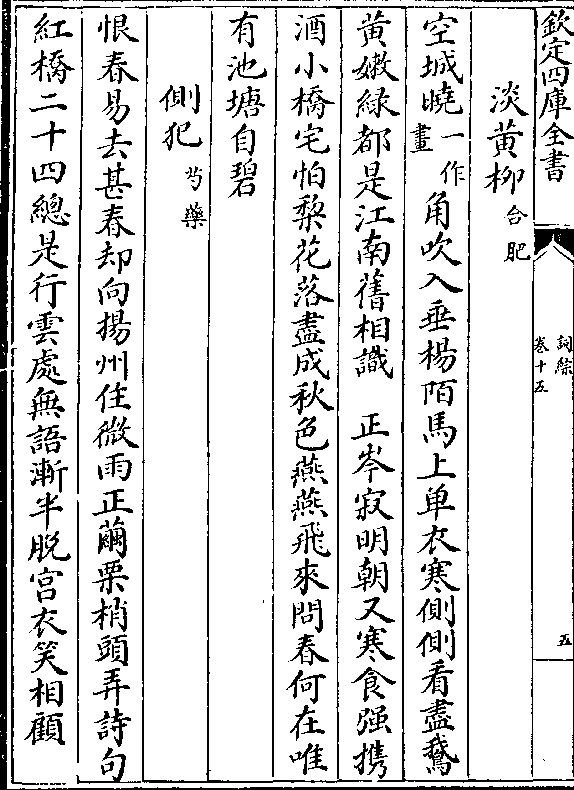 欽定四庫全書
詞綜
卷十五
五
淡黄柳合肥
空城曉一作畫角吹入垂楊陌馬上单衣寒側側看盡鵞
黄嫩綠都是江南舊相識　正岑寂明朝又寒食强携
酒小橋宅怕棃花落盡成秋色燕燕飛來問春何在唯
有池塘自碧
側犯芍藥
恨春易去甚春却向揚州住微雨正繭栗梢頭弄詩句
紅橋二十四總是行雲處無語漸半脱宫衣笑相顧